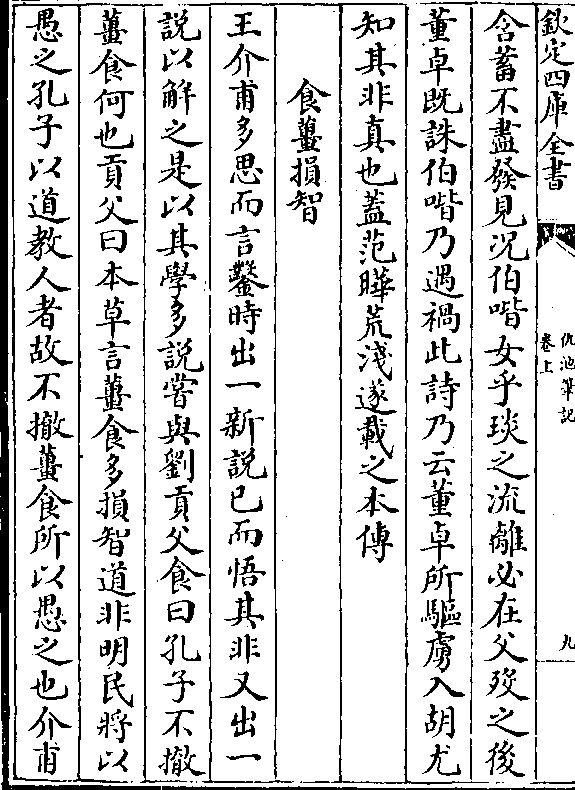 欽定四庫全書
仇池筆記
卷上
九
含蓄不盡發見况伯喈女乎琰之流離必在父殁之後
董卓既誅伯喈乃遇禍此詩乃云董卓所驅虜入胡尤
知其非真也蓋范曄荒淺遂載之本傳
食薑損智
王介甫多思而言鑿時出一新說已而悟其非又出一
說以解之是以其學多說嘗與劉貢父食曰孔子不撤
薑食何也貢父曰本草言薑食多損智道非明民將以
愚之孔子以道教人者故不撤薑食所以愚之也介甫